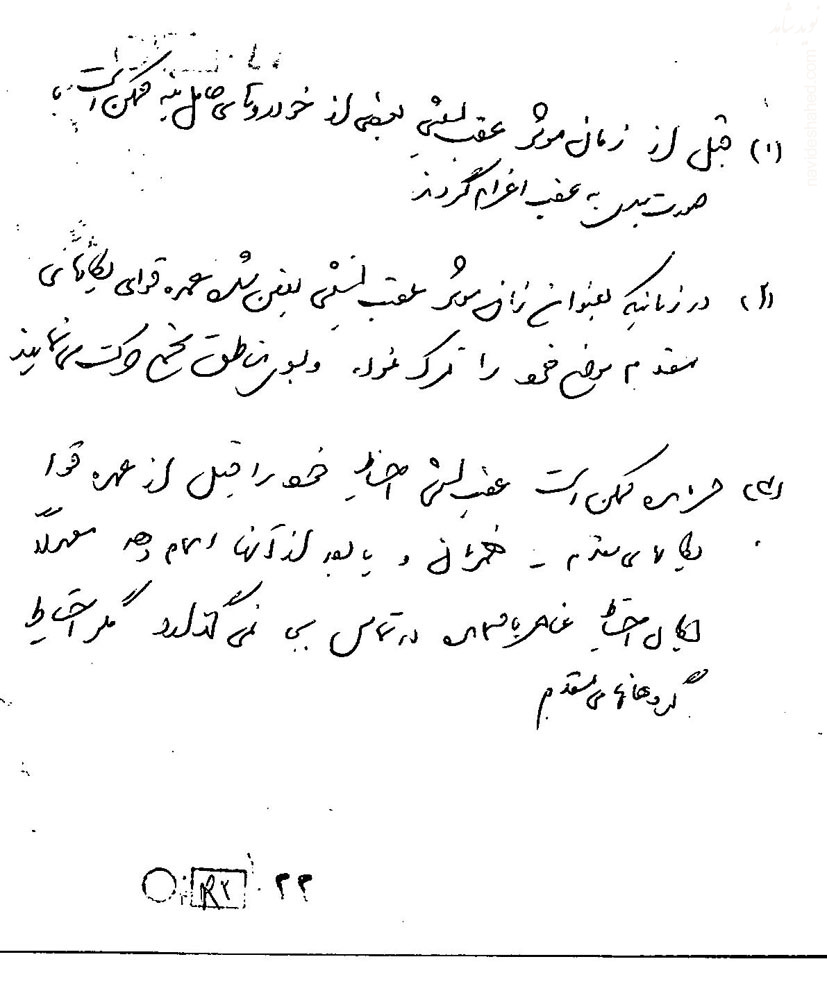 (۱) قبل از زمان موثر عقب نشینی بعضی از خودروهای حامل بنه ممکن است با
صورت بندی به عقب اعزام گردند
(۲) در زمانیکه بعنوان زمان موثر عقب نشینی تعیین شده عمده قوای یگانهای
مقدم موضع خود را ترک نموده و بسوی مناطق تجمع حرکت می نمایند
(۳) فرمانده ممکن است عقب نشینی احتیاط خود را قبل از عمده قوا
یگانهای مقدم - همزمان و یا بعد از آنها انجام دهد معمولا
یگان احتیاط عناصر باقیمانده در تماس بجا نمی گذارد مگر احتیاط
گروهانهای مقدم
R۲ ۲۲
نوید شاهد
navideshahed.com